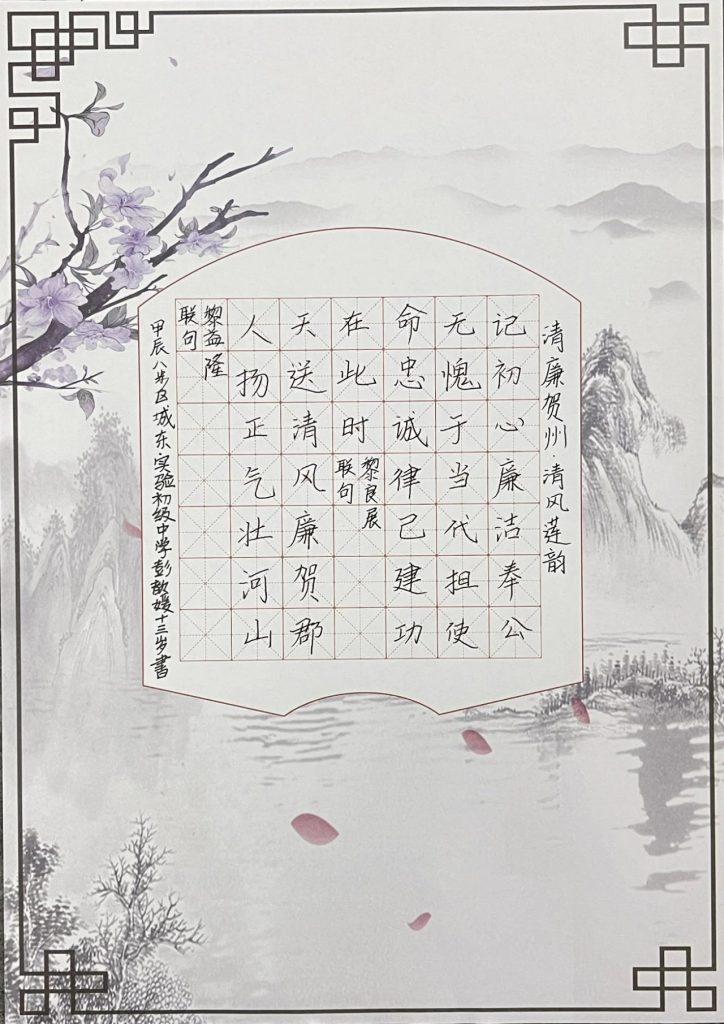 清廉贺州·清风莲韵
记初心廉洁奉公
无愧于当代担使
命忠诚律己建功
在此时
黎良展
联句
天送清风廉贺郡
人扬正气壮河山
黎益隆
联句
甲辰八步区城东实验初级中学彭歆媛十三岁書